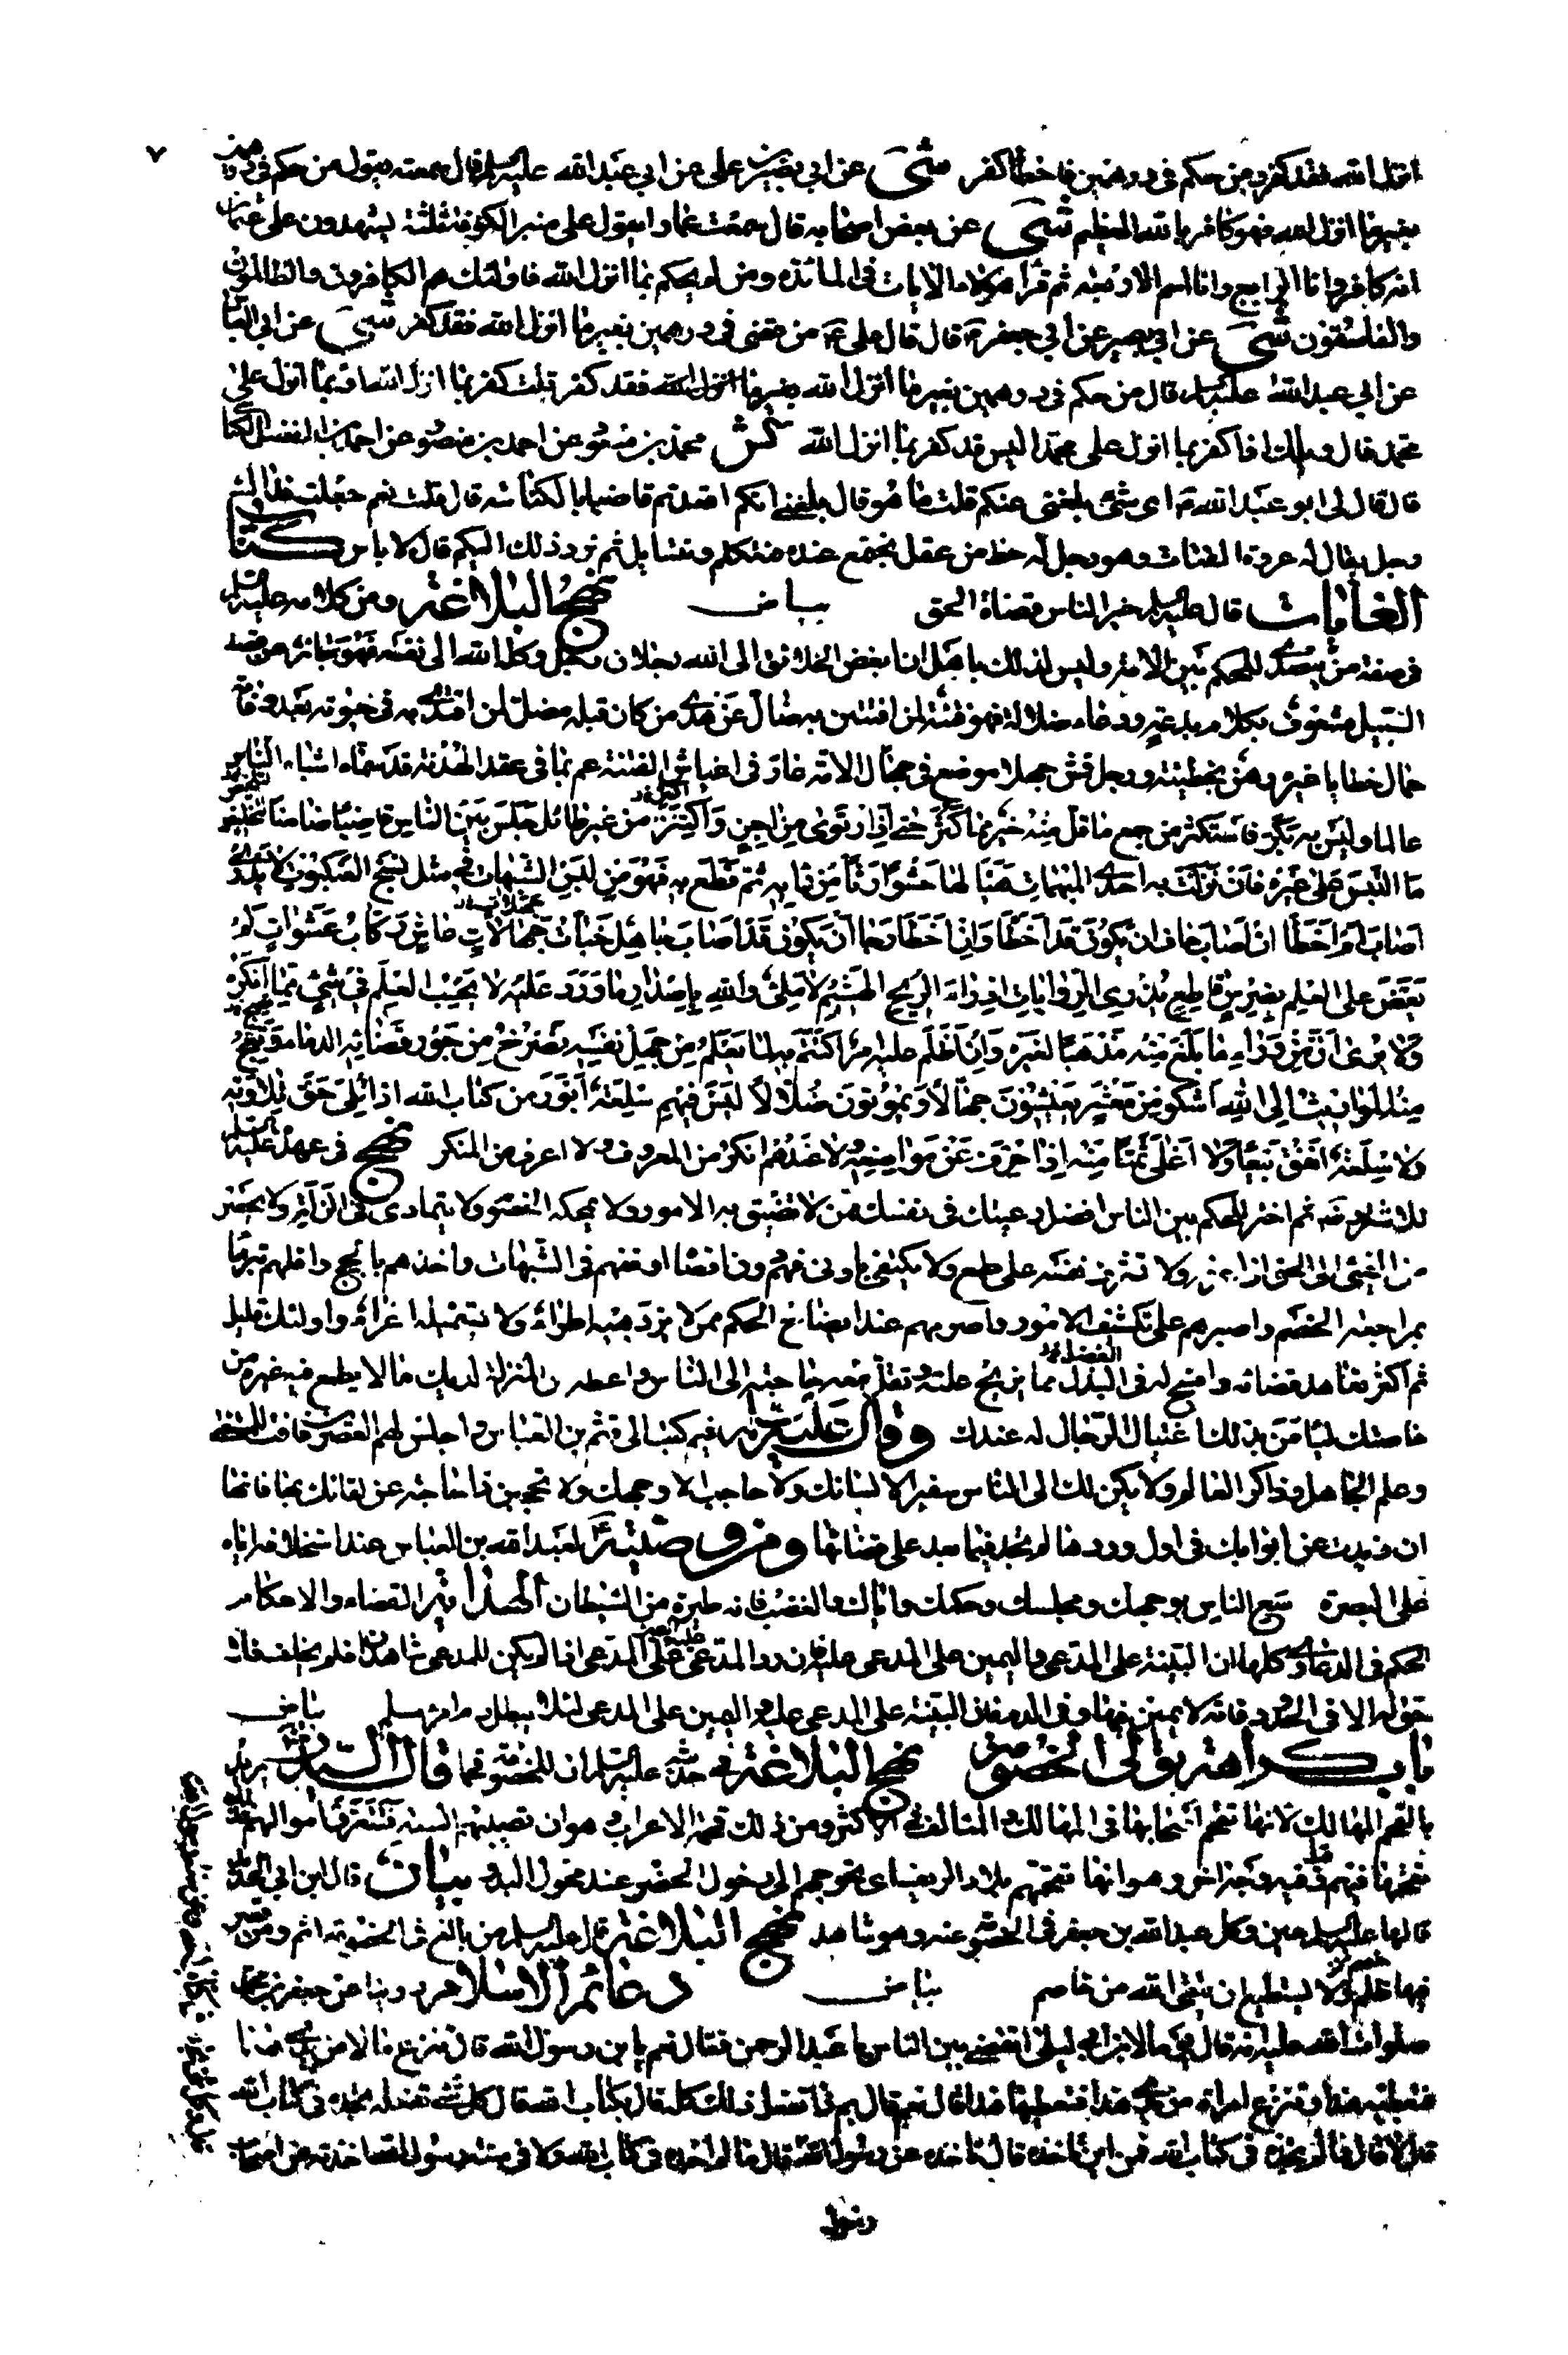 ٧
انزل الله فقد كفر ومن حكم في درهمين فاخطأ كفر شي عن ابي بصير بن علي عن ابي عبد الله عليه السلم قال سمعته يقول من حكم في درهمين
بغير ما انزل الله فهو كافر بالله العظيم شي عن بعض اصحابه قال سمعت عمارا يقول على منبر الكوفة ثلثة يشهدون على عثمان
انه كافر وانا الرابع وانا اسم الاربعة ثم قرأ هؤلاء الايات في المائدة ومن لم يحكم بما انزل الله فاولئك هم الكافرون والظالمون
والفاسقون شي عن ابي بصير عن ابي جعفر ع قال قال علي ع من قضى في درهمين بغير ما انزل الله فقد كفر شي عن ابي العباس
عن ابي عبد الله عليه السلم قال من حكم في درهمين بغير ما انزل الله فقد كفر قلت كفر بما انزل الله او بما انزل على
محمد قال ويلك اذا كفر بما انزل على محمد اليس قد كفر بما انزل الله كش محمد بن مسعود عن احمد بن منصور عن احمد بن الفضل الكناسي
قال قال لي ابو عبد الله ع اي شئ بلغني عنكم قلت ما هو قال بلغني انكم اقعدتم قاضيا بالكناسة قال قلت نعم جعلت فداك
رجل يقال له عروة القتات وهو رجل له حظ من عقل يجتمع عنده فنتكلم ونتسائل ثم نرد ذلك اليكم قال لا باس كتاب
الغايات قال عليه السلم خير الناس قضاة الحق بياض نهج البلاغة ومن كلام له عليه السلم
في صفة من يتصدى للحكم بين الامة وليس لذلك باهل ان ابغض الخلائق الى الله رجلان رجل وكله الله الى نفسه فهو جائر عن قصد
السبيل مشغوف بكلام بدعة ودعاء ضلالة فهو فتنة لمن افتتن به ضال عن هدى من كان قبله مضل لمن اقتدى به في حيوته وبعد وفاته
حمال خطايا غيره رهن بخطيئته ورجل قمش جهلا موضع في جهال الامة غار في اغباش الفتنة عم بما في عقد الهدنة قد سماه اشباه الناس
عالما وليس به بكر فاستكثر من جمع ما قل منه خير مما كثر حتى اذا ارتوى من اجن واكتنز من غير طائل جلس بين الناس قاضيا ضامنا لتخليص
ما التبس على غيره فان نزلت به احدى المبهمات هيأ لها حشوا رثا من رايه ثم قطع به فهو من لبس الشبهات في مثل نسج العنكبوت لا يدري
اصاب ام اخطأ ان اصاب خاف ان يكون قد اخطأ وان اخطأ رجا ان يكون قد اصاب جاهل خباط جهالات عاش ركاب عشوات لم
يعض على العلم بضرس قاطع يذري الروايات اذراء الريح الهشيم لا ملئ والله باصدار ما ورد عليه لا يحسب العلم في شئ مما انكره
ولا يرى ان من وراء ما بلغ منه مذهبا لغيره وان اظلم عليه امر اكتتم به لما يعلم من جهل نفسه تصرخ من جور قضائه الدماء وتعج
منه المواريث الى الله اشكو من معشر يعيشون جهالا ويموتون ضلالا ليس فيهم سلعة ابور من كتاب الله اذا تلي حق تلاوته
ولا سلعة انفق بيعا ولا اغلى ثمنا منه اذا حرف عن مواضعه ولا عندهم انكر من المعروف ولا اعرف من المنكر نهج في عهده عليه السلم
للاشتر ره ثم اختر للحكم بين الناس افضل رعيتك في نفسك ممن لا تضيق به الامور ولا تمحكه الخصوم ولا يتمادى في الزلة ولا يحصر
من الفئ الى الحق اذا عرفه ولا تشرف نفسه على طمع ولا يكتفي بادنى فهم دون اقصاه اوقفهم في الشبهات واخذهم بالحجج واقلهم تبرما
بمراجعة الخصم واصبرهم على تكشف الامور واصرمهم عند اتضاح الحكم ممن لا يزدهيه اطراء ولا يستميله اغراء واولئك قليل
ثم اكثر تعاهد قضائه وافسح له في البذل ما يزيح علته وتقل معه حاجته الى الناس واعطه من المنزلة لديك ما لا يطمع فيه غيره من
خاصتك ليأمن بذلك اغتيال الرجال له عندك وقال عليه السلم فيما كتب الى قثم بن العباس واجلس لهم العصرين فافت المستفتي
وعلم الجاهل وذاكر العالم ولا يكن لك الى الناس سفير الا لسانك ولا حاجب الا وجهك ولا تحجبن ذا حاجة عن لقائك بها فانها
ان ذيدت عن ابوابك في اول وردها لم تحمد فيما بعد على قضائها ومن وصيته ع لعبد الله بن العباس عند استخلافه اياه
على البصرة سع الناس بوجهك ومجلسك وحكمك واياك والغضب فانه طيرة من الشيطان الهداية القضاء والاحكام
الحكم في الدعاوي كلها ان البينة على المدعي واليمين على المدعى عليه فان رد المدعى عليه اليمين على المدعي اذا لم يكن للمدعي شاهدان فلم يحلف فلا
حق له الا في الحدود فانه لا يمين فيها وفي الدم فان البينة على المدعى عليه واليمين على المدعي لئلا يبطل دم امرئ مسلم بياض
باب كراهة تولي الخصومة نهج البلاغة في حديثه عليه السلم ان للخصومة قحما قال السيد يريد
بالقحم المهالك لانها تقحم اصحابها في المهالك والمتالف في الاكثر ومن ذلك قحمة الاعراب وهو ان تصيبهم السنة فتتعرق اموالهم فذلك
تقحمها فيهم وقيل فيه وجه اخر وهو انها تقحمهم بلاد الريف اي تحوجهم الى دخول الحضر عند محول البدو بيان قال ابن ابي الحديد
قالها عليه السلم حين وكل عبد الله بن جعفر في الخصومة عنه وهو شاهد نهج البلاغة قال عليه السلم من بالغ في الخصومة اثم ومن قصر
فيها ظلم ولا يستطيع ان يتقي الله من خاصم بياض دعائم الاسلام روينا عن جعفر بن محمد
صلوات الله عليه انه قال يوما لابن ابي ليلى اتقضي بين الناس يا عبد الرحمن فقال نعم يا بن رسول الله قال تنزع مالا من يدي هذا
فتعطيه هذا وتنزع امراة من يدي هذا فتعطيها هذا قال نعم قال بم ذا تفعل ذلك كله قال بكتاب الله قال كل شئ تفعله تجده في كتاب الله
قال لا قال فما لم تجده في كتاب الله فمن اين تاخذه قال فاخذه عن رسول الله قال وما لم تجده في كتاب الله ولا في سنة رسول الله اخذته عن اصحاب
رسول